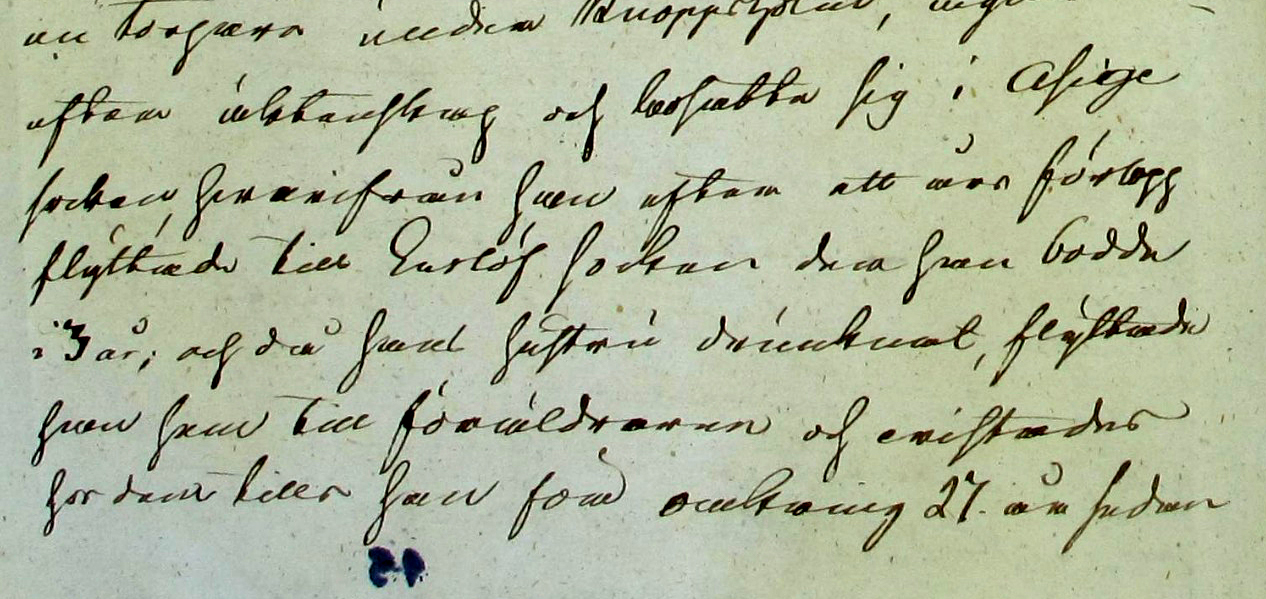 en torpare under
efter äktenskap och bosatte sig i Asige
socken, hvarifrån han efter ett års förlopp
flyttade till Enslöf socken der han bodde
i 3 år; och då hans hustru drunknat, flyttade
han hem till föräldrarne och vistades
hos dem tills han för omkring 27. år sedan